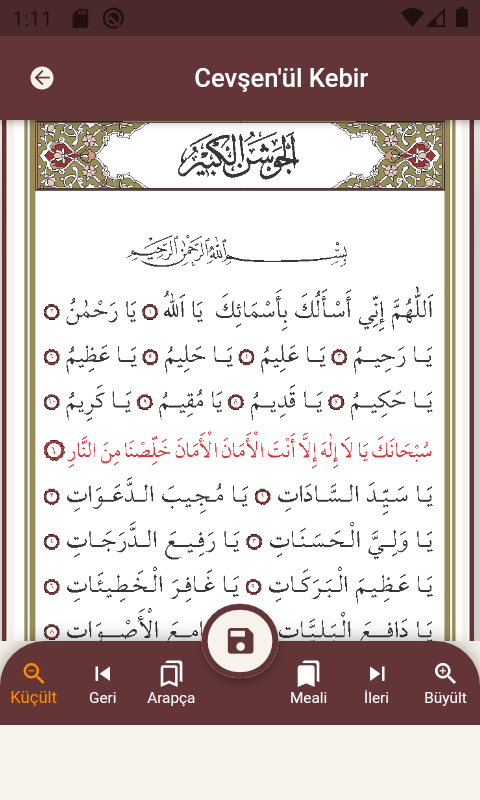 1:11
Cevşen'ül Kebir
اَلْجَوْشَنُ الْكَبِيرُ
بِسْمِ اللّٰهِ الرَّحْمٰنِ الرَّحِيمِ
اَللّٰهُمَّ إِنِّي أَسْأَلُكَ بِأَسْمَائِكَ يَا اَللّٰهُ ١ يَا رَحْمٰنُ ٢
يَا رَحِيمُ ٣ يَا عَلِيمُ ٤ يَا حَلِيمُ ٥ يَا عَظِيمُ ٦
يَا حَكِيمُ ٧ يَا قَدِيمُ ٨ يَا مُقِيمُ ٩ يَا كَرِيمُ ١٠
سُبْحَانَكَ يَا لَا إِلٰهَ إِلَّا أَنْتَ الْأَمَانَ الْأَمَانَ خَلِّصْنَا مِنَ النَّارِ ١
يَا سَيِّدَ السَّادَاتِ ١ يَا مُجِيبَ الدَّعَوَاتِ ٢
يَا وَلِيَّ الْحَسَنَاتِ ٣ يَا رَفِيعَ الدَّرَجَاتِ ٤
يَا عَظِيمَ الْبَرَكَاتِ ٥ يَا غَافِرَ الْخَطِيئَاتِ ٦
يَا دَافِعَ الْبَلِيَّاتِ امِعَ الْأَصْوَاتِ ٨
Küçült Geri Arapça Meali İleri Büyült